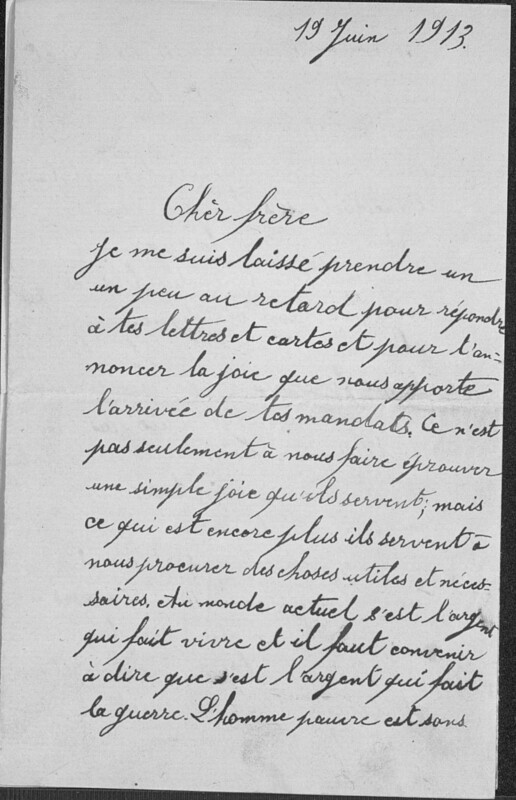 19 Juin 1913.
Chèr frère
Je me suis laissé prendre un
un peu au retard pour répondre
à tes lettres et cartes et pour t'an-
noncer la joie que nous apporte
l'arrivée de tes mandats. Ce n'est
pas seulement à nous faire éprouver
une simple joie qu'ils servent; mais
ce qui est encore plus ils servent à
nous procurer des choses utiles et néces-
saires. Au monde actuel s'est l'argent
qui fait vivre et il faut convenir
à dire que s'est l'argent qui fait
la guerre. L'homme pauvre est sans